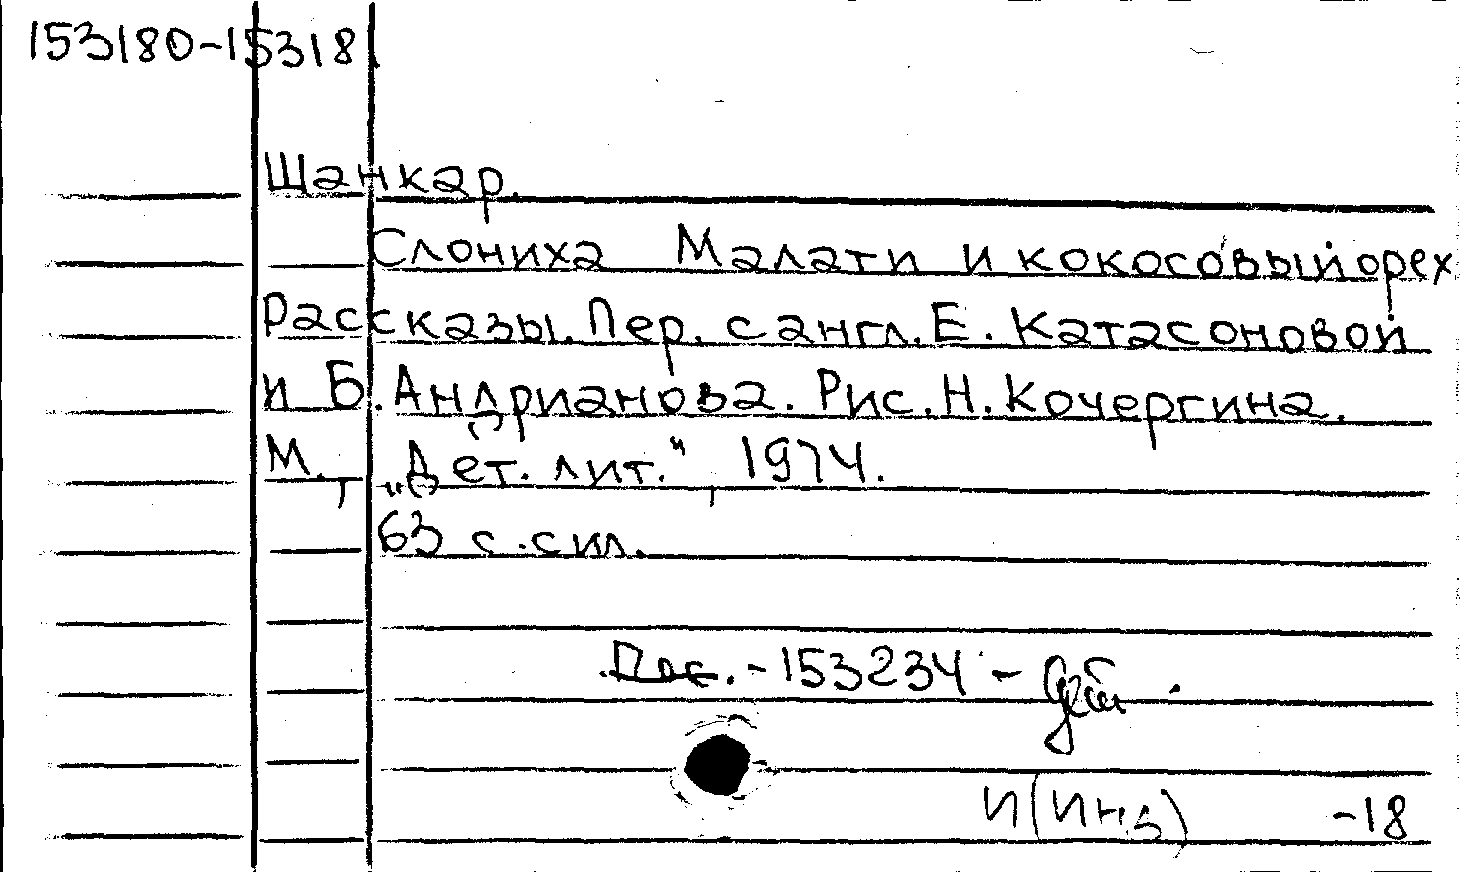 153180-153181
Шанкар.
Слониха Малати и кокосовый орех
Рассказы. Пер. с англ. Е. Катасоновой
и Б. Андрианова. Рис. Н. Кочергина.
М., „Дет. лит.", 1974.
63 с. с ил.
153234 - дет.
И(Инд) -18